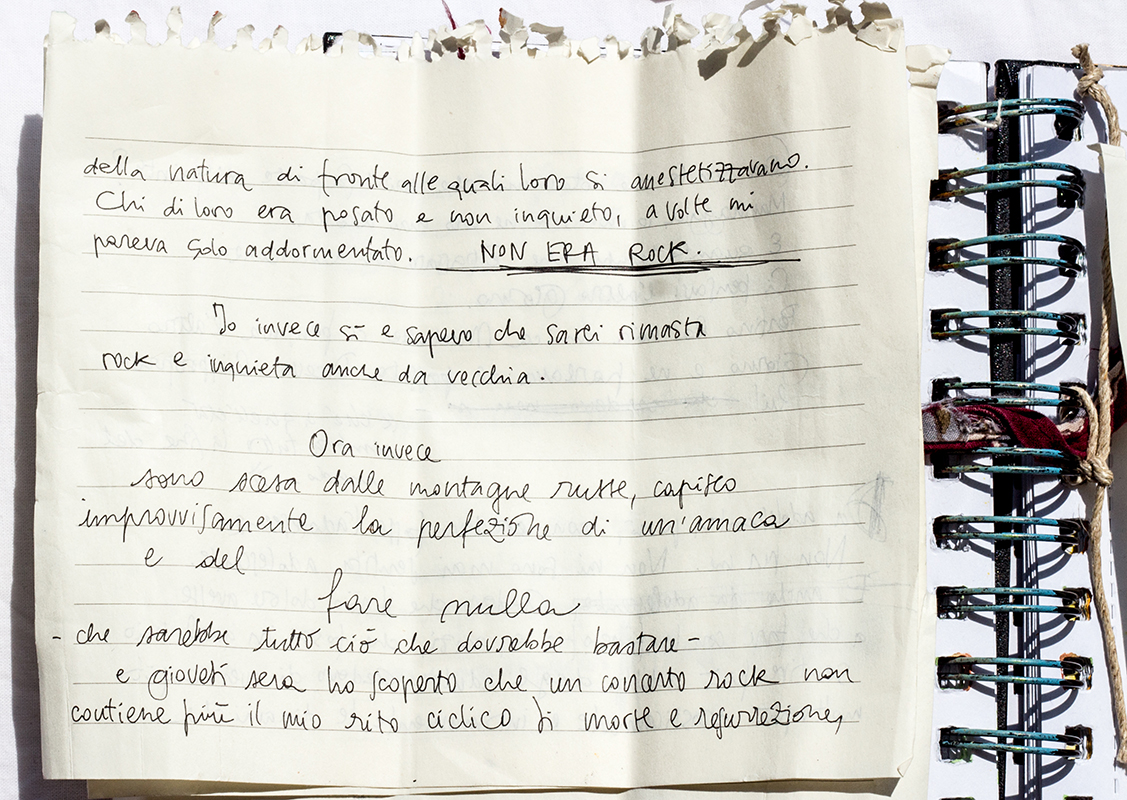 della natura di fronte alle quali loro si anestetizzavano.
Chi di loro era posato e non inquieto, a volte mi
pareva solo addormentato. NON ERA ROCK.
Io invece sì e sapevo che sarei rimasta
rock e inquieta anche da vecchia.
Ora invece
sono scesa dalle montagne russe, capisco
improvvisamente la perfezione di un'amaca
e del
fare nulla
- che sarebbe tutto ciò che dovrebbe bastare -
e giovedì sera ho scoperto che un concerto rock non
contiene più il mio rito ciclico di morte e resurrezione,